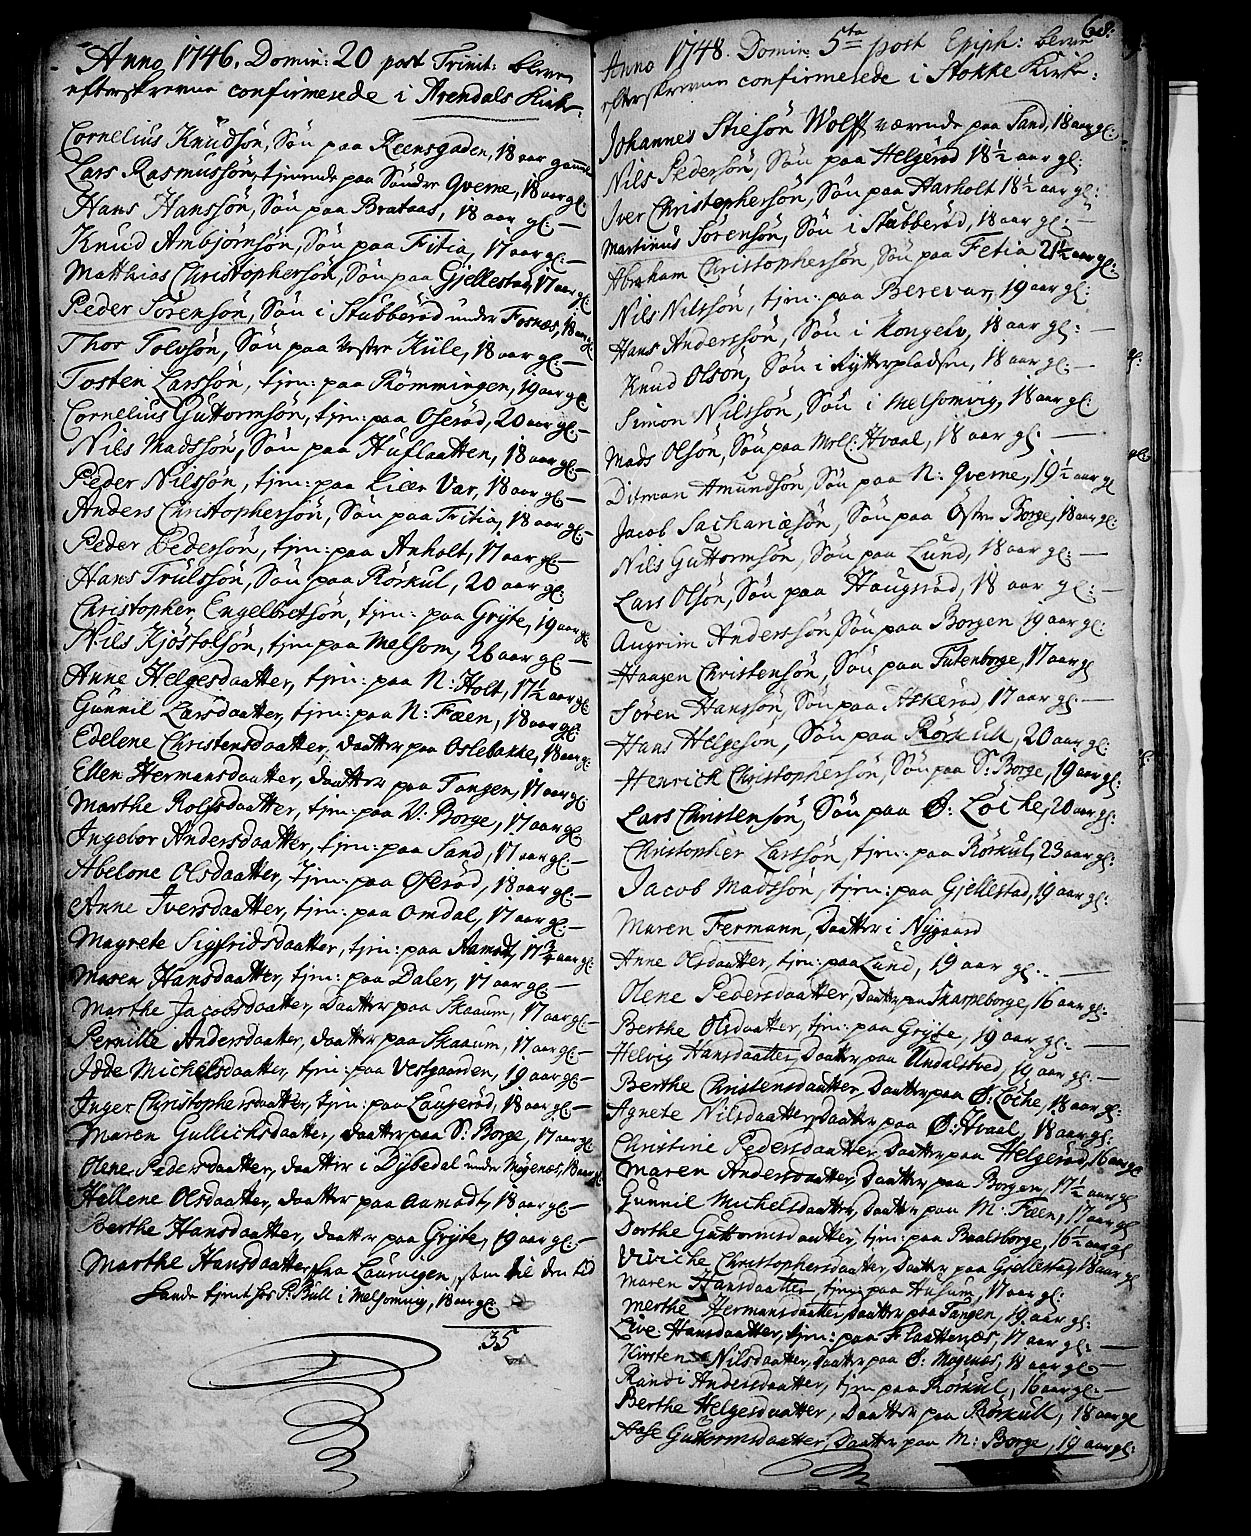 Anno 1746. Domin: 20 post Trinit: bleve
efterskrevne confirmerede i Arendals Kirke.
Cornelius Knudsön, Sön paa Reensgaden, 18 aar gamel
Lars Rasmussön, tjenende paa Söndre Qverne, 18 aar gl:
Hans Hanssön, Sön paa Brataas, 18 aar gl: —
Knud Ambjörnsön, Sön paa Fitia, 17 aar gl: —
Matthias Christophersön, Sön paa Gjellestad, 17 aar gl:
Peder Sörensön, Sön i Stubberöd under Fosnæs, 18 aar gl
Thor Tolvsön, Sön paa Vestre Kiile, 18 aar gl: —
Tosten Larssön, tjen: paa Römmingen, 19 aar gl:
Cornelius Guttormsön, tjen: paa Oseröd, 20 aar gl: —
Nils Madssön, Sön paa Huflaatten, 18 aar gl: —
Peder Nilssön, tjen: paa Lille Var, 18 aar gl: —
Anders Christophersön, Sön paa Fitia, 18 aar gl: —
Peder Pedersön, tjen: paa Anholt, 17 aar gl: —
Hans Trulssön, Sön paa Rörkul, 20 aar gl:
Christopher Engelbretsön, tjen: paa Gryte, 19 aar gl:
Nils Kjöstolsön, tjen paa Melsom, 26 aar gl: —
Anne Helgesdaatter, tjen: paa N: Holt, 17½ aar gl:
Gunnil Larsdaatter, tjen: paa N: Fæen, 18 aar gl:
Edelene Christensdaatter, daatter paa Oslebakke, 18 aar gl:
Ellen Hermansdaatter, daatter paa Tangen, 17 aar gl:
Marthe Rolfsdaatter, tjen: paa V: Borge, 17 aar gl:
Ingebor Andersdaatter, tjen: paa Sand, 17 aar gl: —
Abelone Olsdaatter, tjen: paa Oseröd, 18 aar gl: —
Anne Iversdaatter, tjen: paa Omdal, 17 aar gl: —
Magrete Sigfridsdaatter, tjen: paa Aamodt, 17¾ aar gl:
Maren Hansdaatter, tjen: paa Dalen, 17 aar gl: —
Marthe Jacobsdaatter, Daatter paa Skaaum, 17 aar gl: —
Pernille Andersdaatter, daatter paa Skaaum, 17 aar gl: —
Idde Michelsdaatter, tjen: paa Vestgaarden, 19 aar gl: —
Inger Christophersdaatter, tjen: paa Laugeröd, 18 aar gl: —
Maren Gullichsdaatter, daatter paa S: Borge, 17 aar gl
Olene Pedersdaatter, daatter i Dybedal under Möyenæs, 18 aar gl
Hellene Olsdaatter, daatter paa Aamodt, 18 aar gl: —
Berthe Hansdaatter, daatter paa Gryte, 19 aar gl: —
Marthe Hansdaatter fra Laurvigen, som til den tid
Lande tjent hos P. Bull i Melsomvig, 18 aar gl:
35
68.
Anno 1748. Domin 5ta post Epiph: bleve
efterskrevne confirmerede i Stokke Kirke:
Johannes Stiesön Wolff værende paa Sand, 18 aar gl:
Nils Pedersön, Sön paa Helgeröd 18½ aar gl:
Iver Christophersön, Sön paa Aarholt 18½ aar gl:
Martinus Sörensön, Sön i Stubberöd, 18 aar gl: —
Abraham Christophersön, Sön paa Fetia 21½ aar gl:
Nils Nilssön, tjen: paa Berevar, 19 aar gl:
Hans Anderssön, Sön i Kongelv, 18 aar gl: —
Knud Olsön, Sön i Rytterpladsen, 18 aar gl: —
Simon Nilssön, Sön i Melsomvig, 18 aar gl:
Mads Olsön, Sön paa Mell: Hvaal, 18 aar gl: —
Ditman Amundsön, Sön paa N: Qverne, 19½ aar gl
Jacob Sachariæsön, Sön paa Östre Borge, 18 aar gl:
Nils Guttormsön, Sön paa Lund, 18 aar gl: —
Lars Olsön, Sön paa Haugeröd, 18 aar gl: —
Augrim Anderssön, Sön paa Borgen 19 aar gl:
Haagen Christensön, Sön paa Futenborge, 17 aar gl
Sören Hanssön, Sön paa Askeröd 17 aar gl: —
Hans Helgeson, Sön paa Rörkull, 20 aar gl:
Henrich Christophersön, Sön paa S: Borge, 19 aar gl:
Lars Christensön, Sön paa Ö: Löche, 20 aar gl:
Christopher Larssön, tjen: paa Rörkul, 23 aar gl:
Jacob Madssön, tjen: paa Gjellestad, 19 aar gl:
Maren Fermann, Daatter i Nygaard
Anne Olsdaatter, tjen: paa Lund, 19 aar gl: —
Olene Pedersdaatter, Daatter paa Skarpeborge, 16 aar gl:
Berthe Olsdaatter, tjen: paa Gryte, 19 aar gl: —
Helvig Hansdaatter, Daatter paa Undalstved, 19 aar gl: —
Berthe Christensdaatter, Daatter paa Ö: Löche, 18 aar gl:
Agnete Nilsdaatter, Daatter paa Ö: Hvaal, 18 aar gl:
Christine Pedersdaatter, Daatter paa Helgeröd, 16 aar gl
Maren Andersdaatter, Daatter paa Borgen, 17½ aar gl
Gunnil Michelsdaatter, Daatter paa M: Fæen, 17 aar gl
Dorthe Guttormsdaatter, tjen: paa Baalsborge, 16½ aar gl
Viviche Christophersdaatter, Daatter paa Gjellestad, 18 aar gl
Maren Hansdaatter tjen: paa Husum, 17 aar gl:
Merthe Hermansdaatter, Daatter paa Tangen, 19 aar gl:
Live Hansdaatter, tjen: paa Flaattenæs, 17 aar gl: —
Kirsten Nilsdaatter, Daatter paa Ö: Möyenæs, 18 aar gl
Randi Andersdaatter, tjen paa Rörkul, 16 aar gl: —
Berthe Helgesdaatter, Daatter paa Rörkull, 18 aar gl
Aase Guttormsdaatter, Daatter paa M: Borge, 19 aar gl: